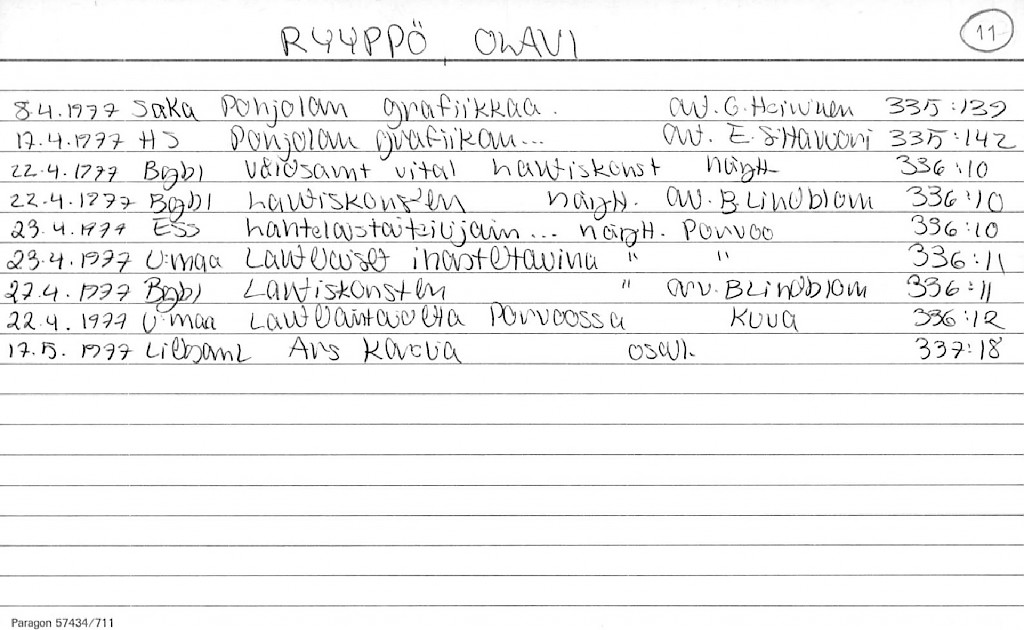 RYYPPÖ, OLAVI 11
8.4.1977 SaKa Pohjolan grafiikkaa. arv. 335:139
17.4.1977 HS Pohjolan grafiikan... arv. E. 335:142
22.4.1977 Bgbl våldsamt vital lahtiskonst näytt. 336:10
22.4.1977 Bgbl Lahtiskonsten näytt. arv. B Lindblom 336:10
23.4.1977 ESS näytt. Porvoo 336:10
23.4.1977 U:maa Lahtelaiset ihasteltavina " " 336:11
27.4.1977 Bgbl Lahtiskonsten " arv. B Lindblom 336:11
22.4.1977 U:maa Porvoossa Kuva 336:12
17.5.1977 Ars osall. 337:18
Paragon 57434/711